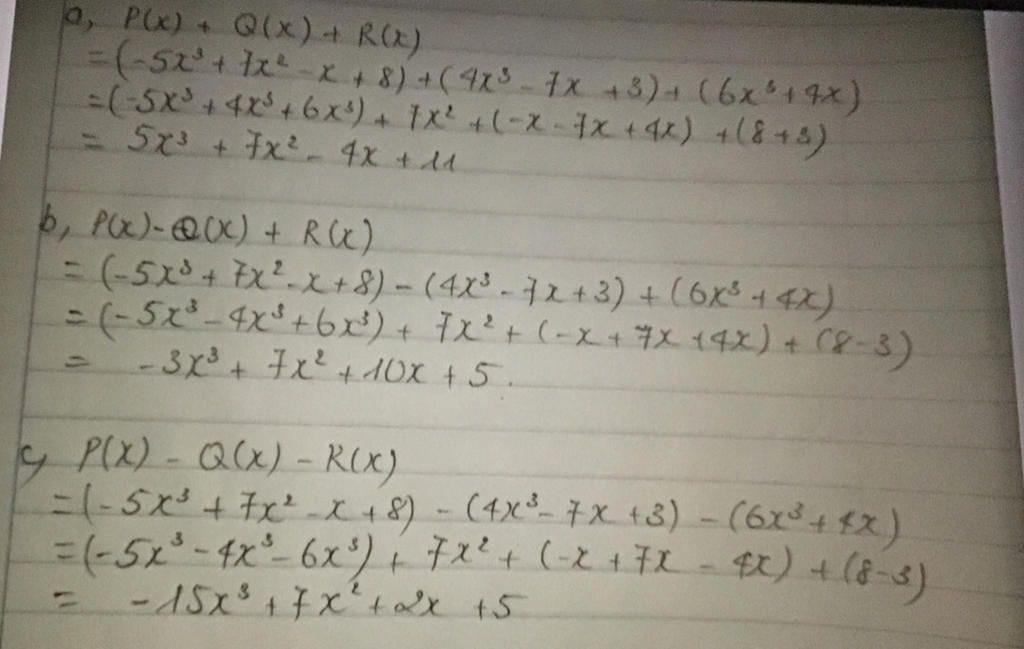 a, P(x) + Q(x) + R(x)
= (-5x³ + 7x² - x + 8) + (4x³ - 7x + 3) + (6x³ + 4x)
= (-5x³ + 4x³ + 6x³) + 7x² + (-x - 7x + 4x) + (8 + 3)
= 5x³ + 7x² - 4x + 11
b, P(x) - Q(x) + R(x)
= (-5x³ + 7x² - x + 8) - (4x³ - 7x + 3) + (6x³ + 4x)
= (-5x³ - 4x³ + 6x³) + 7x² + (-x + 7x + 4x) + (8 - 3)
= -3x³ + 7x² + 10x + 5.
c, P(x) - Q(x) - R(x)
= (-5x³ + 7x² - x + 8) - (4x³ - 7x + 3) - (6x³ + 4x)
= (-5x³ - 4x³ - 6x³) + 7x² + (-x + 7x - 4x) + (8 - 3)
= -15x³ + 7x² + 2x + 5